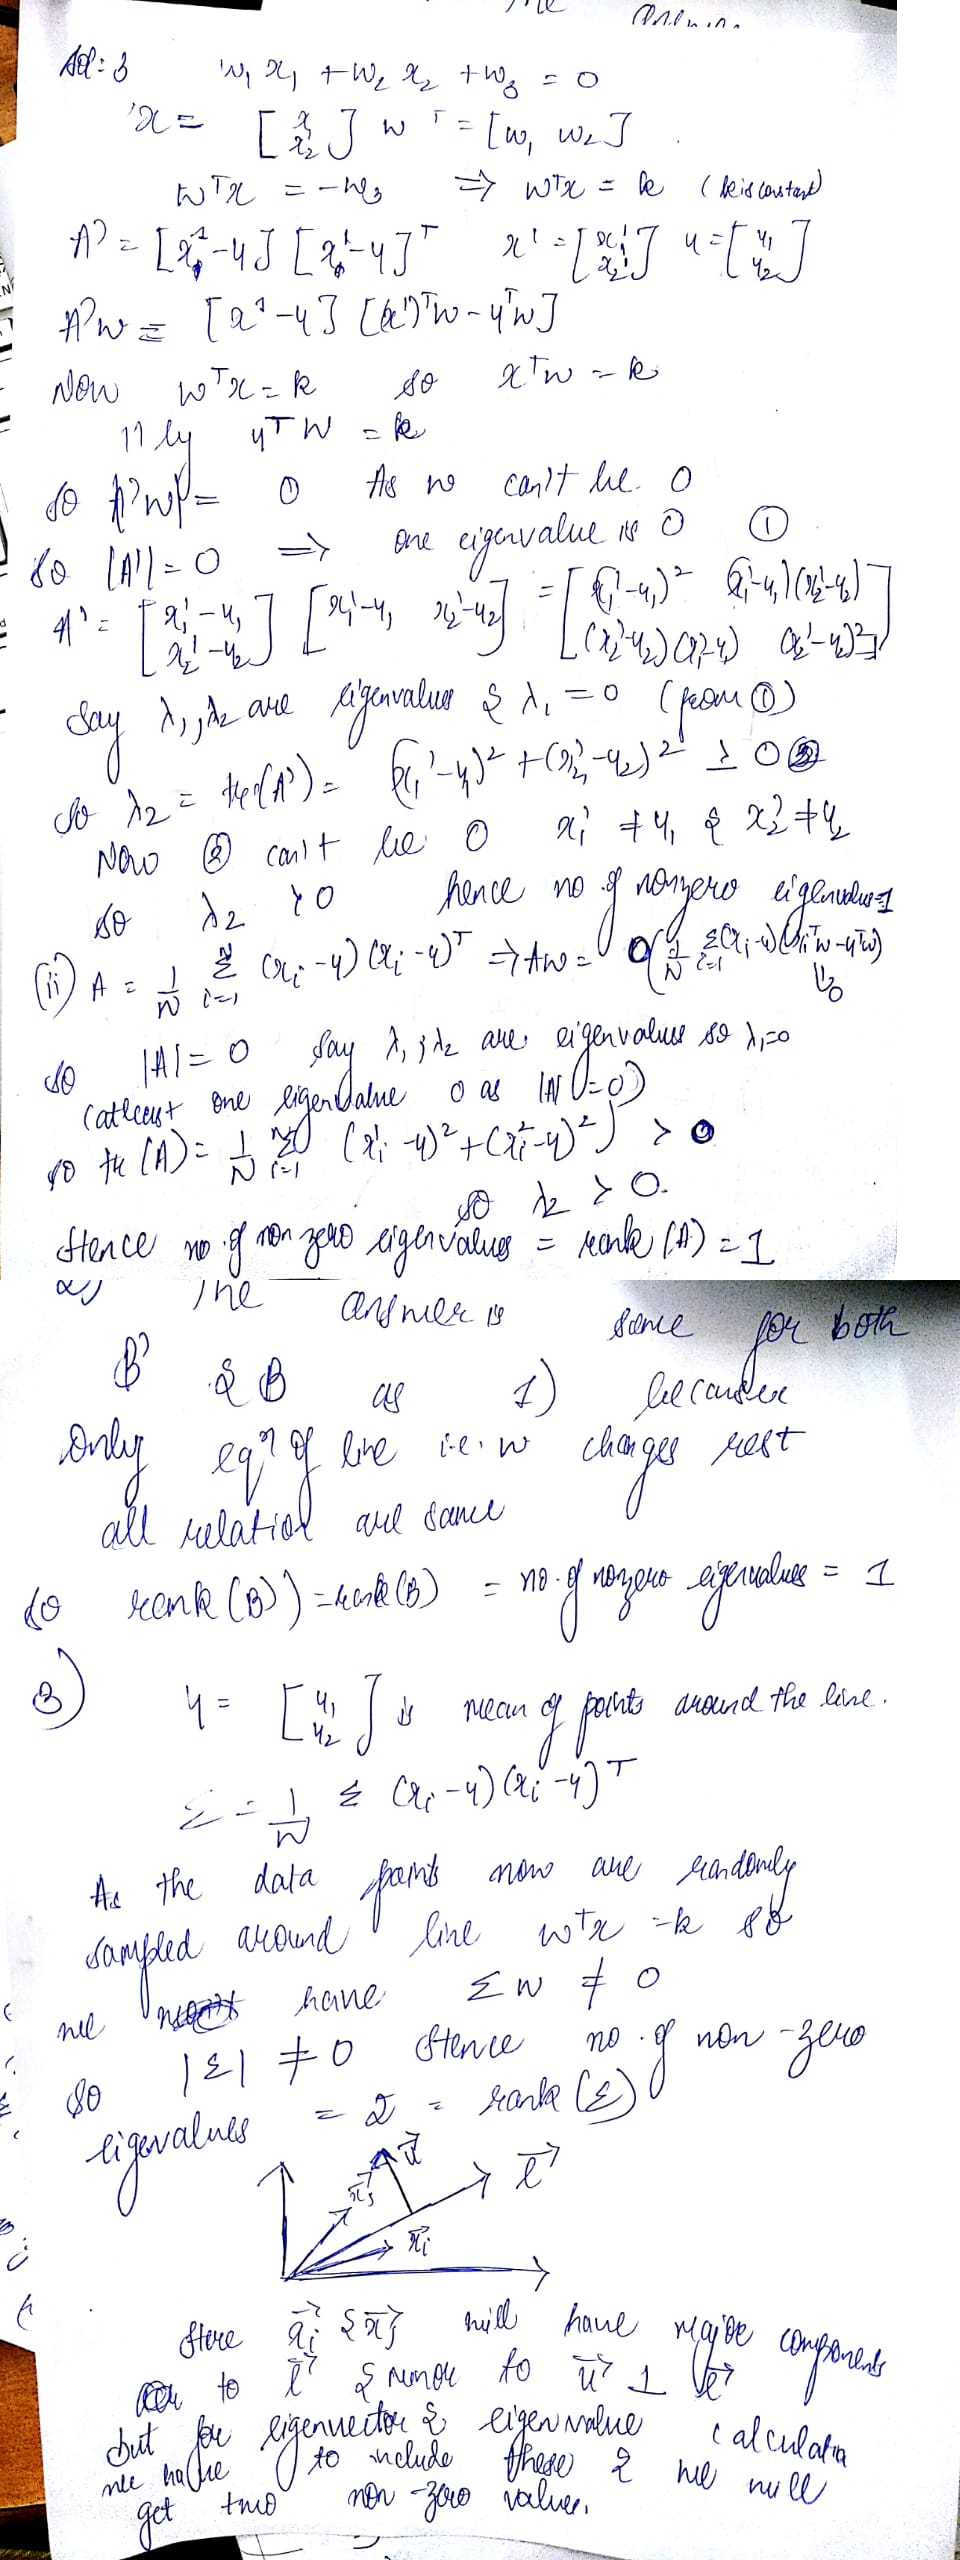 Sol: 3 w₁x₁ + w₂x₂ + w₃ = 0
x = [x₁ x₂] wᵀ = [w₁ w₂]
wᵀx = -w₃ ⇒ wᵀx = k (k is constant)
A' = [x¹-μ] [x¹-μ]ᵀ x' = [x₁' x₂'] μ = [μ₁ μ₂]
A'w = [x¹-μ] [(x')ᵀw - μᵀw]
Now wᵀx = k so xᵀw = k
11ly μᵀw = k
so A'w = 0 As w can't be 0
So |A'| = 0 ⇒ one eigenvalue is 0 ①
A' = [x₁'-μ₁ x₂'-μ₂] [x₁'-μ₁ x₂'-μ₂] = [(x₁'-μ₁)² (x₁'-μ₁)(x₂'-μ₂) (x₂'-μ₂)(x₁'-μ₁) (x₂'-μ₂)²]
Say λ₁, λ₂ are eigenvalues & λ₁ = 0 (from ①)
So λ₂ = tr(A') = (x₁'-μ₁)² + (x₂'-μ₂)² ≥ 0 ②
Now ② can't be 0 x₁' ≠ μ₁ & x₂' ≠ μ₂
so λ₂ > 0 hence no. of nonzero eigenvalues = 1
(ii) A = 1/N Σᵢ₌₁ᴺ (xᵢ-μ)(xᵢ-μ)ᵀ ⇒ Aw = 0 (1/N Σᵢ₌₁ (xᵢ-μ)(xᵢᵀw-μᵀw)
⇓ 0
so |A| = 0 Say λ₁, λ₂ are eigenvalues so λ₁=0
(atleast one eigenvalue 0 as |A|=0)
so tr(A) = 1/N Σᵢ₌₁ᴺ (xᵢ¹-μ)² + (xᵢ²-μ)²) > 0
so λ₂ > 0.
Hence no. of non zero eigenvalues = rank(A) = 1
2) The answer is same for both
B' & B as 1) because
Only eqⁿ of line i.e. w changes rest
all relation are same
So rank(B') = rank(B) = no. of nonzero eigenvalues = 1
3) μ = [μ₁ μ₂] is mean of points around the line.
Σ = 1/N Σ (xᵢ-μ)(xᵢ-μ)ᵀ
As the data points now are randomly
sampled around line wᵀx = k so
we have Σw ≠ 0
So |Σ| ≠ 0 Hence no. of non-zero
eigenvalues = 2 = rank(Σ)
u
xⱼ l
xᵢ
Here xᵢ & xⱼ will have major components
to l & minor to u ⊥ l
but for eigenvector & eigenvalue calculation
we have to include these 2 we will
get two non-zero values.